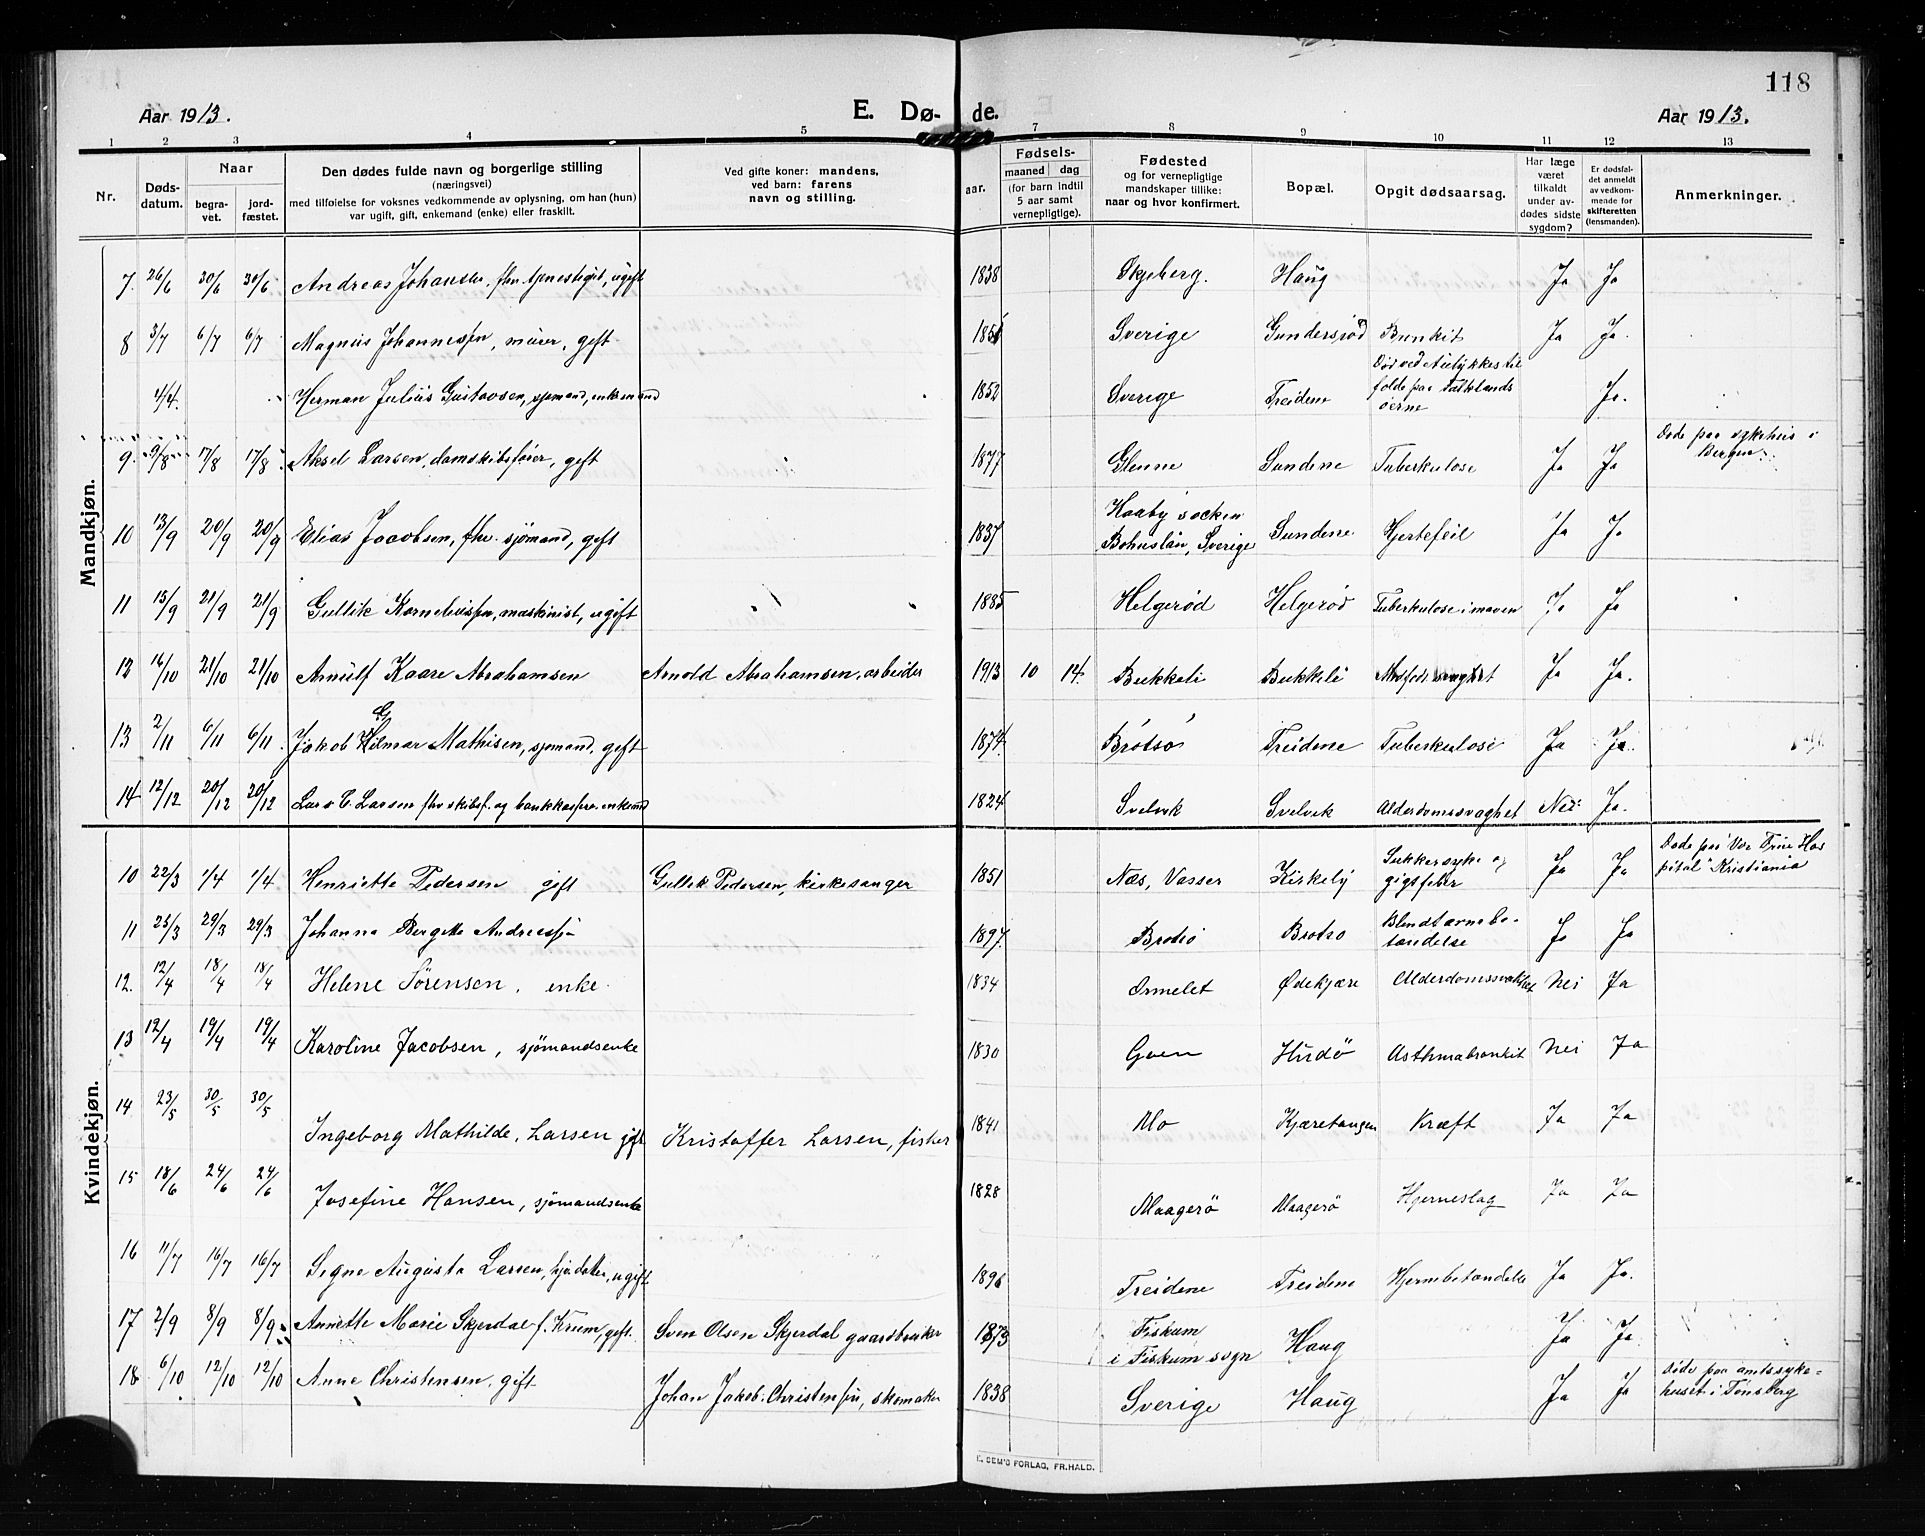 118
Aar 1913.
E. Dø- de.
Aar 1913.
1 2 3 4 5 7 8 9 10 11 12 13
Nr.
Døds-
datum.
Naar
begra-
vet.
jord-
fæstet.
Den dødes fulde navn og borgerlige stilling
(næringsvei)
med tilføielse for voksnes vedkommende av oplysning, om han (hun)
var ugift, gift, enkemand (enke) eller fraskilt.
Ved gifte koner: mandens,
ved barn: farens
navn og stilling.
aar.
Fødsels-
maaned dag
(for barn indtil
5 aar samt
vernepligtige).
Fødested
og for vernepligtige
mandskaper tillike:
naar og hvor konfirmert.
Bopæl.
Opgit dødsaarsag.
Har læge
været
tilkaldt
under av-
dødes sidste
sygdom?
Er dødsfal-
det anmeldt
av vedkom-
mende for
skifteretten
(lensmanden).
Anmerkninger.
Mandkjøn.
7. 26/6 30/6 30/6 Andreas Johansen, fhv. tjenestegut, ugift 1838 Skjeberg. Haug Ja Ja
8 3/7 6/7 6/7 Magnus Johannessen, murer, gift Sverige Gundersrød Bronkit Ja Ja.
4/4. Herman Julius Gustavsen, sjømand, enkemand 1852 Sverige Treidene Død ved Aulykkestil
folde paa Falklands
øerne Ja.
9. 9/8 17/8 17/8 Aksel Larsen, damskibsfører, gift 1877 Glenne Sundene Tuberkulose Ja Ja Døde paa sykehus i
Bergen.
10 13/9 20/9 20/9 Elias Jacobsen, fhv. sjömand, gift 1837 Haaby socken
Bohuslän, Sverige Sundene Hjertefeil Ja Ja
11 15/9 21/9 21/9 Gullik Korneliussen, maskinist, ugift 1885 Helgerød Helgerød Tuberkulose i maven Ja Ja
12 16/10 21/10 21/10 Arnulf Kaare Abrahamsen Arnold Abrahamsen, arbeider 1913 10 14. Bukkeli Bukkeli Medfødt svaghet Ja Ja.
13 2/11 6/11 6/11. Jakob G. Hilmar Mathisen, sjømand, gift 1874. Brøtsø Treidene Tuberkulose Ja Ja.
14 12/12 20/12 20/12 Lars C. Larsen fhv skibsf. og bankkasserer. enkemd 1824 Svelvik Svelvik Alderdomssvaghet Nei Ja.
Kvindekjøn.
10 22/3 1/4 1/4 Henriette Pedersen gift Gullik Pedersen, kirkesanger 1851 Næs, Vasser Kirkely Sukkersyke og
gigtfeber Ja Ja Døde paa "Vor Frue Hos
pital" Kristiania
11 23/3 29/3 29/3 Johanne Bergitte Andreassen 1897. Brøtsø Brøtsø Blindtarmsbe-
tændelse Ja Ja
12. 12/4 18/4 18/4 Helene Sørensen, enke. 1834 Ormelet Ødekjære Alderdomssvakhet Nei Ja
13 12/4 19/4 19/4 Karoline Jacobsen, sjömandsenke 1830 Goen Hudö Asthmabronkit Nei Ja
14 23/5 30/5 30/5 Ingeborg Mathilde, Larsen gift Kristoffer Larsen, fisker 1841 Mo Kjæretangen Kræft Ja Ja
15 18/6 24/6 24/6 Josefine Hansen, sjömandsenke 1828 Maagerö Maagerö Hjerneslag Ja Ja
16 11/7 16/7 16/7 Signe Augusta Larsen, hjd. datter, ugift 1896 Treidene Treidene Hjernebetændelse Ja Ja.
17 2/9 8/9 8/9 Annette Marie Skjerdal f. Krum, gift. Sven Olsen Skjerdal gaardbruker 1873 Fiskum
i Fiskum sogn Haug Ja Ja.
18 6/10 12/10 12/10 Anne Christensen, gift Johan Jakob Christensen, skomaker 1838 Sverige Haug Ja Ja Døde paa amtssyke-
huset i Tønsberg
E. SEM'S FORLAG, FR.HALD.